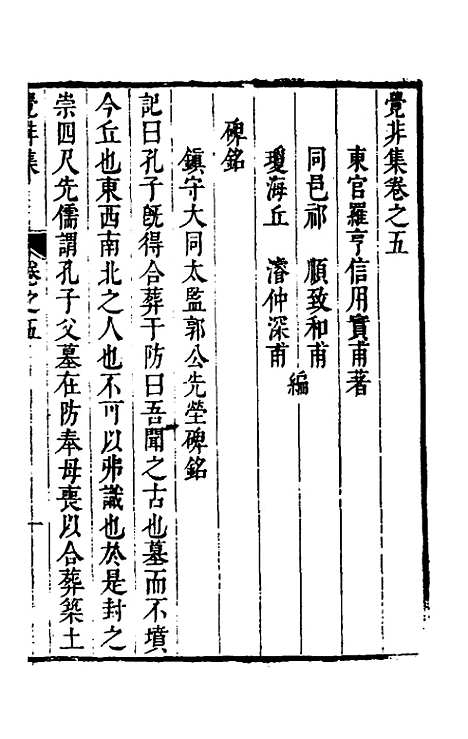 覺非集卷之五
東官羅亨信用實甫著
同邑祁 順致和甫
瓊海丘 濬仲深甫
編
碑銘
鎮守大同太監郭公先塋碑銘
記曰孔子旣得合葬于防曰吾聞之古也墓而不墳
今丘也東西南北之人也不可以弗識也於是封之
崇四尺先儒謂孔子父墓在防奉母喪以合葬築土
覺非集
卷之五
一